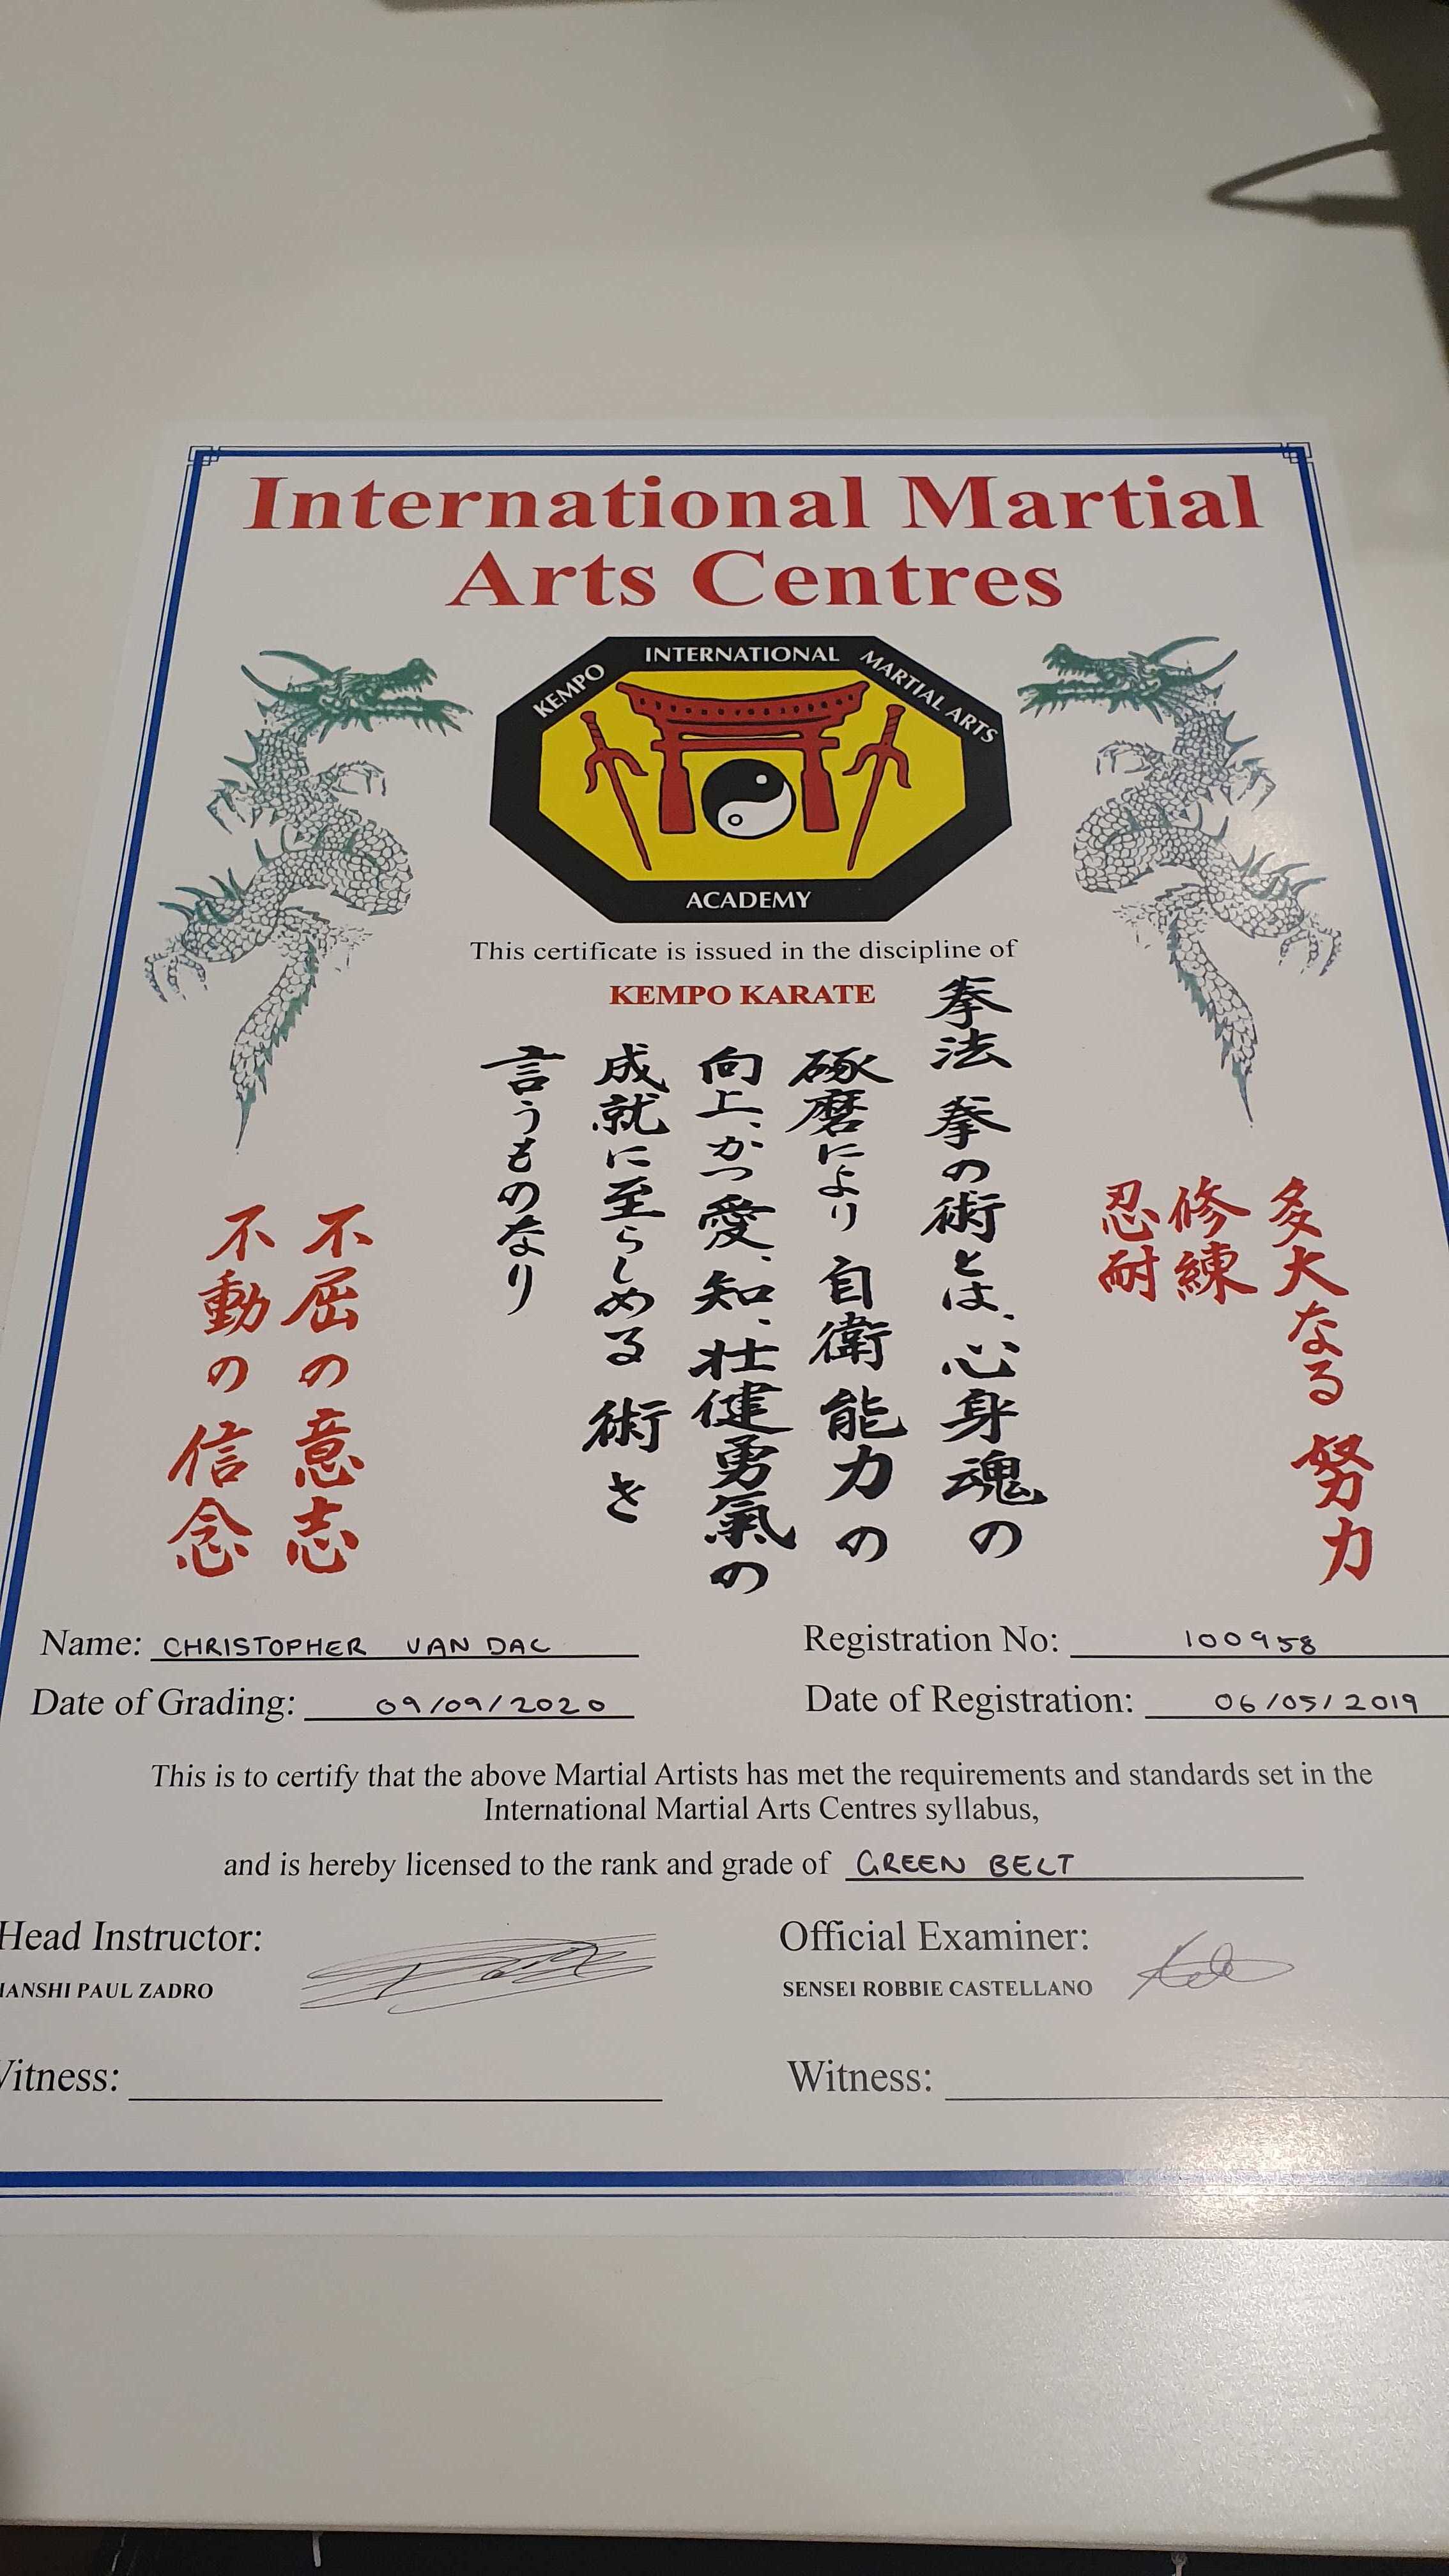 International Martial
Arts Centres
KEMPO INTERNATIONAL MARTIAL ARTS
ACADEMY
This certificate is issued in the discipline of
KEMPO KARATE
多大なる努力
修練
忍耐
拳法 拳の術とは、心身魂の
琢磨により自衛能力の
向上、かつ愛、知、壮健勇氣の
成就に至らしめる術き
言うものなり
不屈の意志
不動の信念
Name: CHRISTOPHER VAN DAL
Registration No: 100958
Date of Grading: 09/09/2020
Date of Registration: 06/05/2019
This is to certify that the above Martial Artists has met the requirements and standards set in the
International Martial Arts Centres syllabus,
and is hereby licensed to the rank and grade of GREEN BELT
Head Instructor:
Official Examiner:
PAUL ZADRO
SENSEI ROBBIE CASTELLANO
Witness: